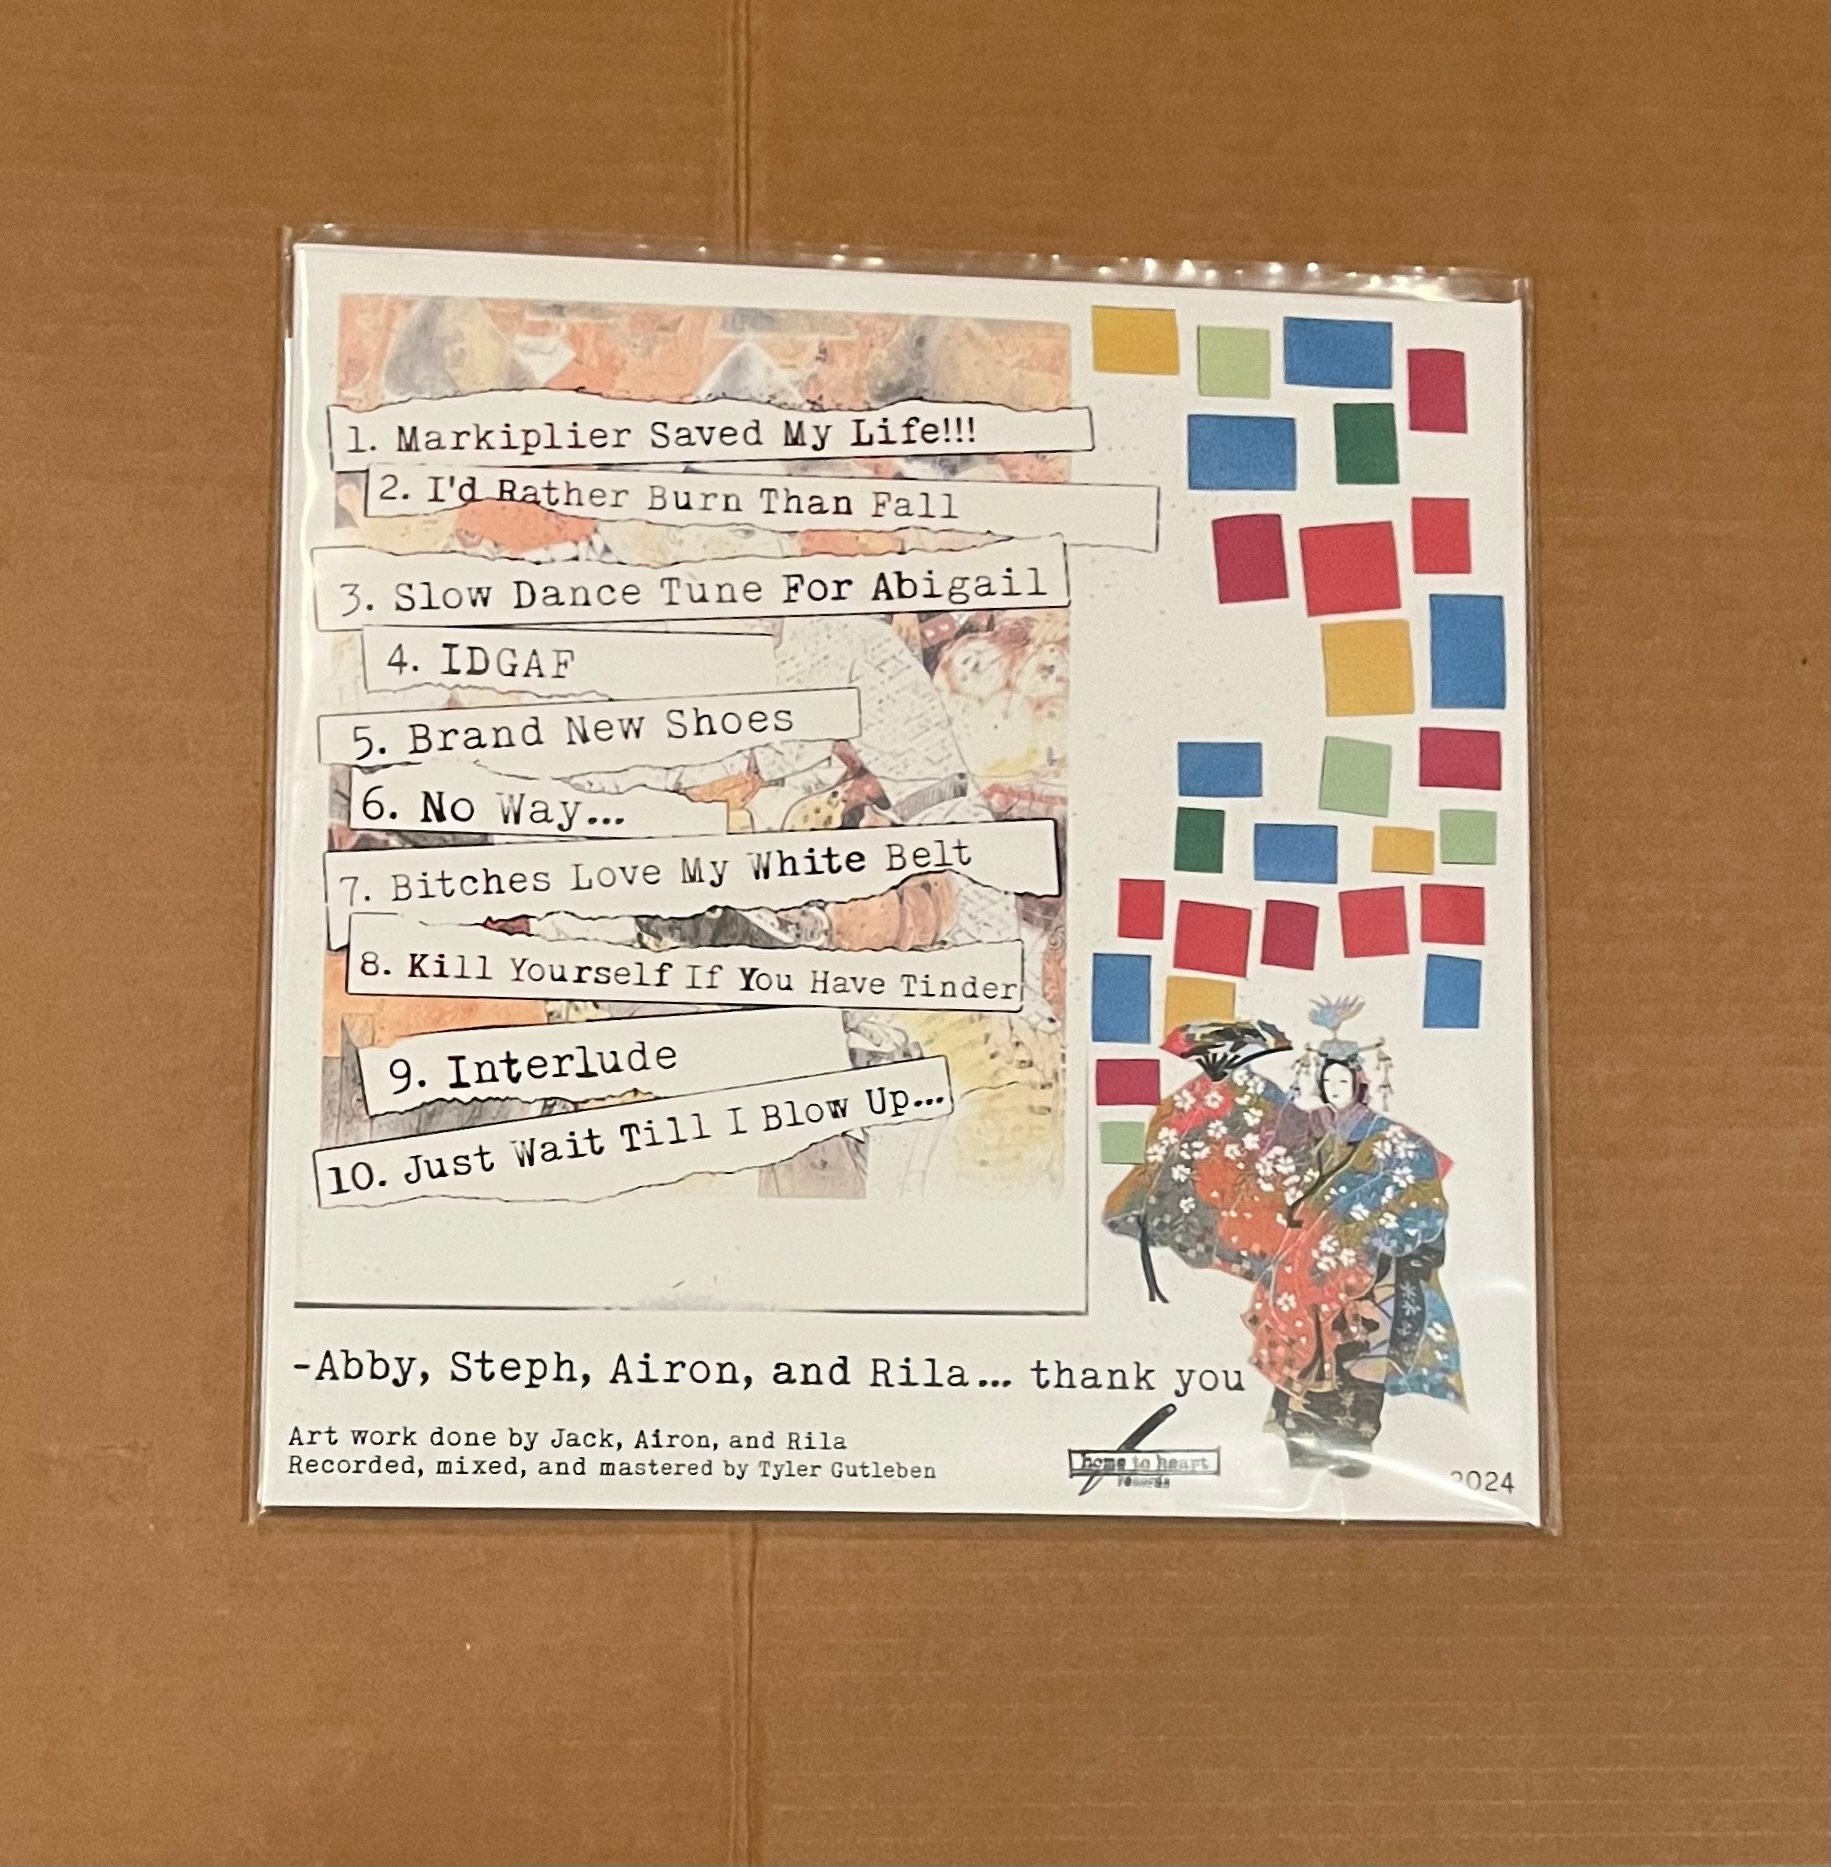 1. Markiplier Saved My Life!!!
2. I'd Rather Burn Than Fall
3. Slow Dance Tune For Abigail
4. IDGAF
5. Brand New Shoes
6. No Way...
7. Bitches Love My White Belt
8. Kill Yourself If You Have Tinder
9. Interlude
10. Just Wait Till I Blow Up...
-Abby, Steph, Airon, and Rila... thank you
Art work done by Jack, Airon, and Rila
Recorded, mixed, and mastered by Tyler Gutleben
home to heart
records
2024